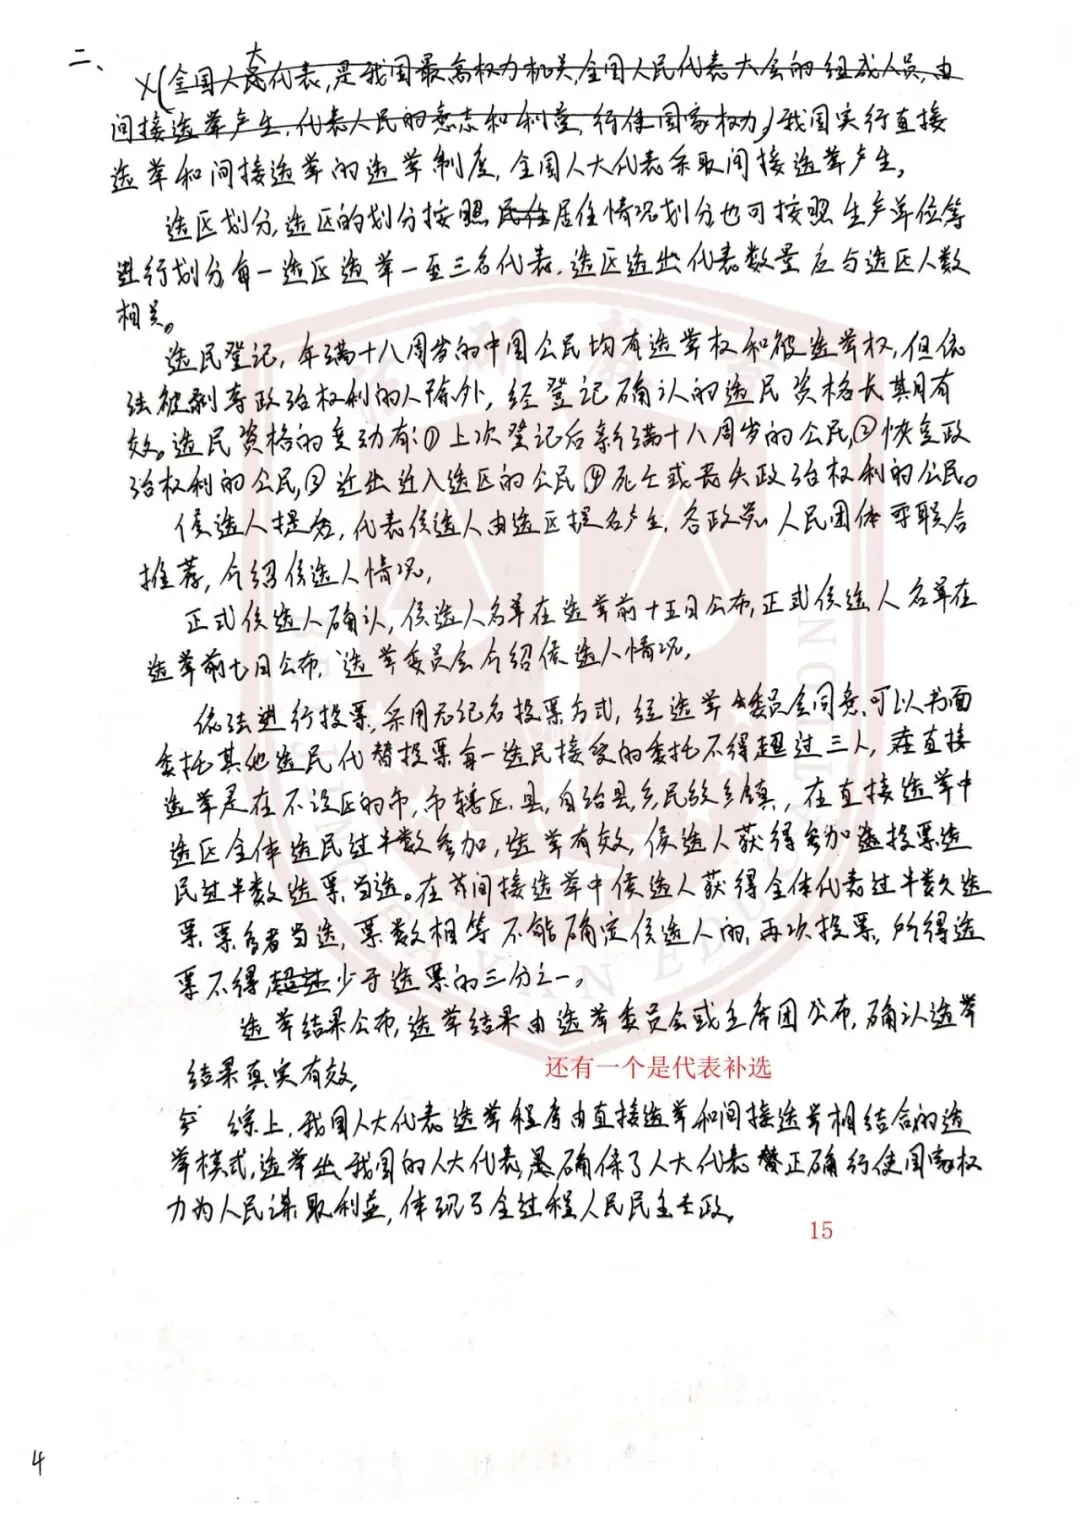 二、
大
×(全国人民代表,是我国最高权力机关,全国人民代表大会的组成人员,由
间接选举产生,代表人民的意志和利益,行使国家权力,)我国实行直接
选举和间接选举的选举制度,全国人大代表采取间接选举产生。
选区划分,选区的划分按照民住居住情况划分也可按照生产单位等
进行划分每一选区选举一至三名代表,选区选出代表数量应与选区人数
相关。
选民登记,年满十八周岁的中国公民均有选举权和被选举权,但依
法被剥夺政治权利的人除外,经登记确认的选民资格长期有
效。选民资格的变动有:①上次登记后新满十八周岁的公民,②恢复政
治权利的公民,③迁出迁入选区的公民④死亡或丧失政治权利的公民。
候选人提名,代表候选人由选区提名产生,各政党、人民团体可联合
推荐,介绍候选人情况,
正式候选人确认,候选人名单在选举前十五日公布,正式候选人名单在
选举前七日公布,选举委员会介绍候选人情况,
依法进行投票,采用无记名投票方式,经选举委员会同意,可以书面
委托其他选民代替投票每一选民接受的委托不得超过三人,在直接
选举是在不设区的市,市辖区,县,自治县,乡民族乡镇,在直接选举中
选区全体选民过半数参加,选举有效,候选人获得参加选投票选
民过半数选票当选。在间接选举中候选人获得全体代表过半数选
票,票多者当选,票数相等不能确定候选人的,再次投票,所得选
票不得超过少于选票的三分之一,
选举结果公布,选举结果由选举委员会或主席团公布,确认选举
结果真实有效,
还有一个是代表补选
综上,我国人大代表选举程序由直接选举和间接选举相结合的选
举模式,选举出我国的人大代表,确保了人大代表正确行使国家权
力为人民谋取利益,体现了全过程人民民主专政,
15
4